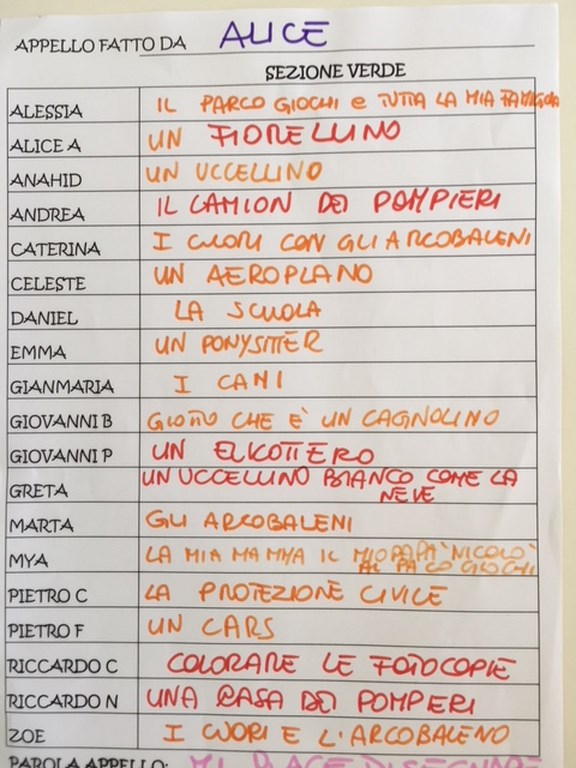 APPELLO FATTO DA ALICE
SEZIONE VERDE
ALESSIA IL PARCO GIOCHI e TUTTA LA MIA FAMIGLIA
ALICE A UN FIORELLINO
ANAHID UN UCCELLINO
ANDREA IL CAMION DEI POMPIERI
CATERINA I CUORI CON GLI ARCOBALENI
CELESTE UN AEROPLANO
DANIEL LA SCUOLA
EMMA UN PONYSITTER
GIANMARIA I CANI
GIOVANNI B GIOTTO CHE E' UN CAGNOLINO
GIOVANNI P UN ELICOTTERO
GRETA UN UCCELLINO BIANCO COME LA
NEVE
MARTA GLI ARCOBALENI
MYA LA MIA MAMMA IL MIO PAPA' NICOLO'
AL PARCO GIOCHI
PIETRO C LA PROTEZIONE CIVILE
PIETRO F UN CARS
RICCARDO C COLORARE LE FOTOCOPIE
RICCARDO N UNA CASA DEI POMPIERI
ZOE I CUORI E L'ARCOBALENO
PAROLA APPELLO: MI PIACE DISEGNARE